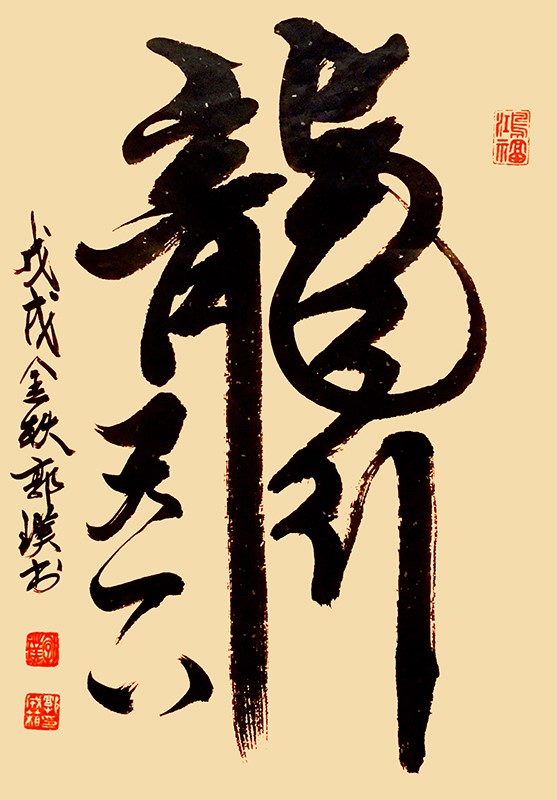 鸿福
龍行天下
戊戌金秋郭璞书